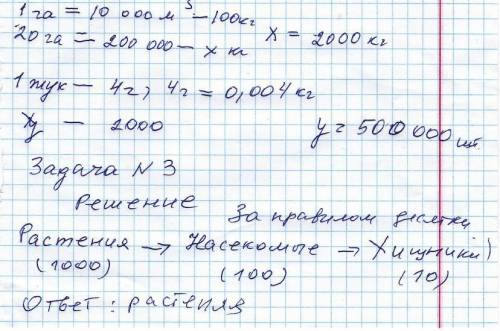 1 га = 10 000 м³ – 100 кг
20 га = 200 000 – х кг х = 2000 кг
1 жук – 4г, 4г = 0,004 кг
Ху – 2000 у = 500 000 шт.
Задача N 3
Решение
За правилом десятки
Растения → Насекомые → Хищники)
(1000) (100) (10)
Ответ: растения